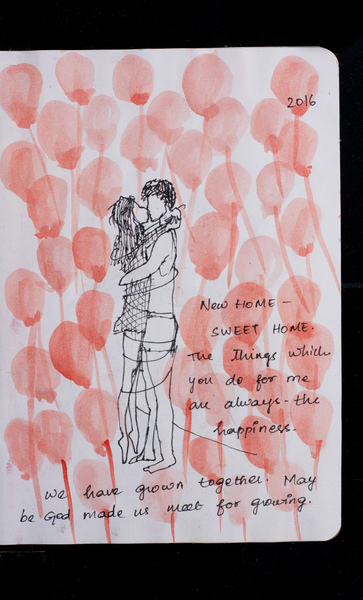 2016
New HOME -
SWEET HOME.
The Things which
you do for me
are always - the
happiness.
we have grown together. May
be God made us meet for growing.